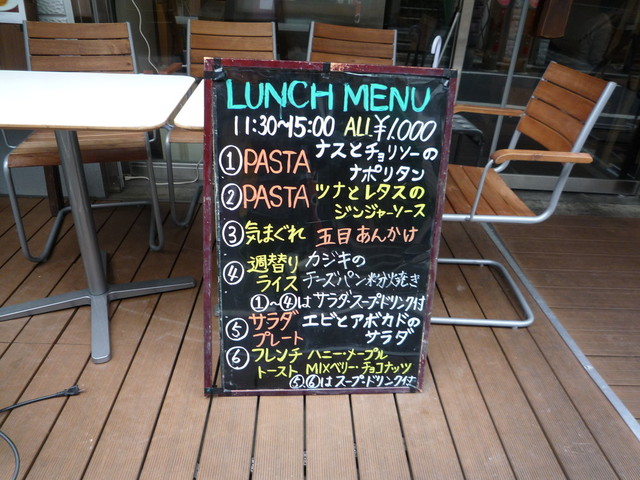 LUNCH MENU
11:30~15:00 ALL ¥1.000
① PASTA ナスとチョリソーの
ナポリタン
② PASTA ツナとレタスの
ジンジャーソース
③ 気まぐれ 五目あんかけ
④ 週替り カジキの
ライス チーズパン粉焼き
①~④は サラダ・スープドリンク付
⑤ サラダ エビとアボカドの
プレート サラダ
⑥ フレンチ ハニー・メープル
トースト MIXベリー・チョコナッツ
⑤.⑥は スープ・ドリンク付